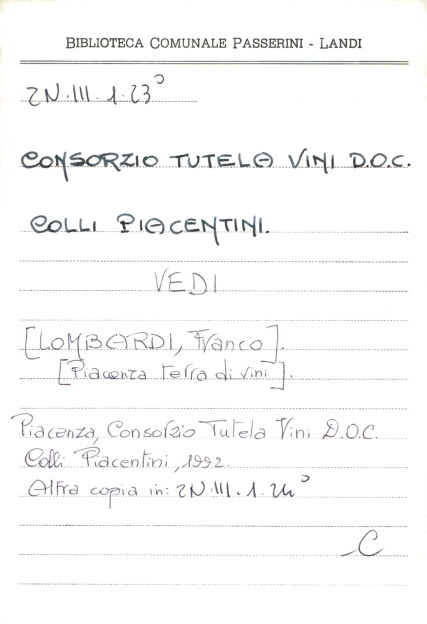 BIBLIOTECA COMUNALE PASSERINI - LANDI
2N.III.1.23°
CONSORZIO TUTELA VINI D.O.C.
COLLI PIACENTINI.
VEDI
[LOMBARDI, Franco].
[Piacenza terra di vini].
Piacenza, Consorzio Tutela Vini D.O.C.
Colli Piacentini, 1992.
Altra copia in: 2N.III.1.24°
C